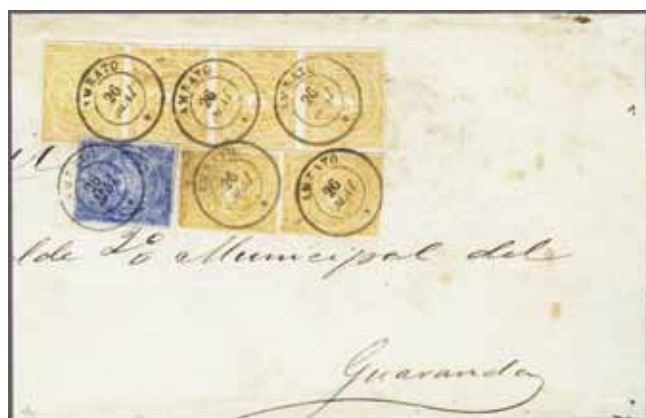 AMBATO 26 MAI
AMBATO 26 MAI
AMBATO 26 MAI
AMBATO 26 MAI
AMBATO 26 MAI
AMBATO 26 MAI
lde 2º Municipal del
Guaranda